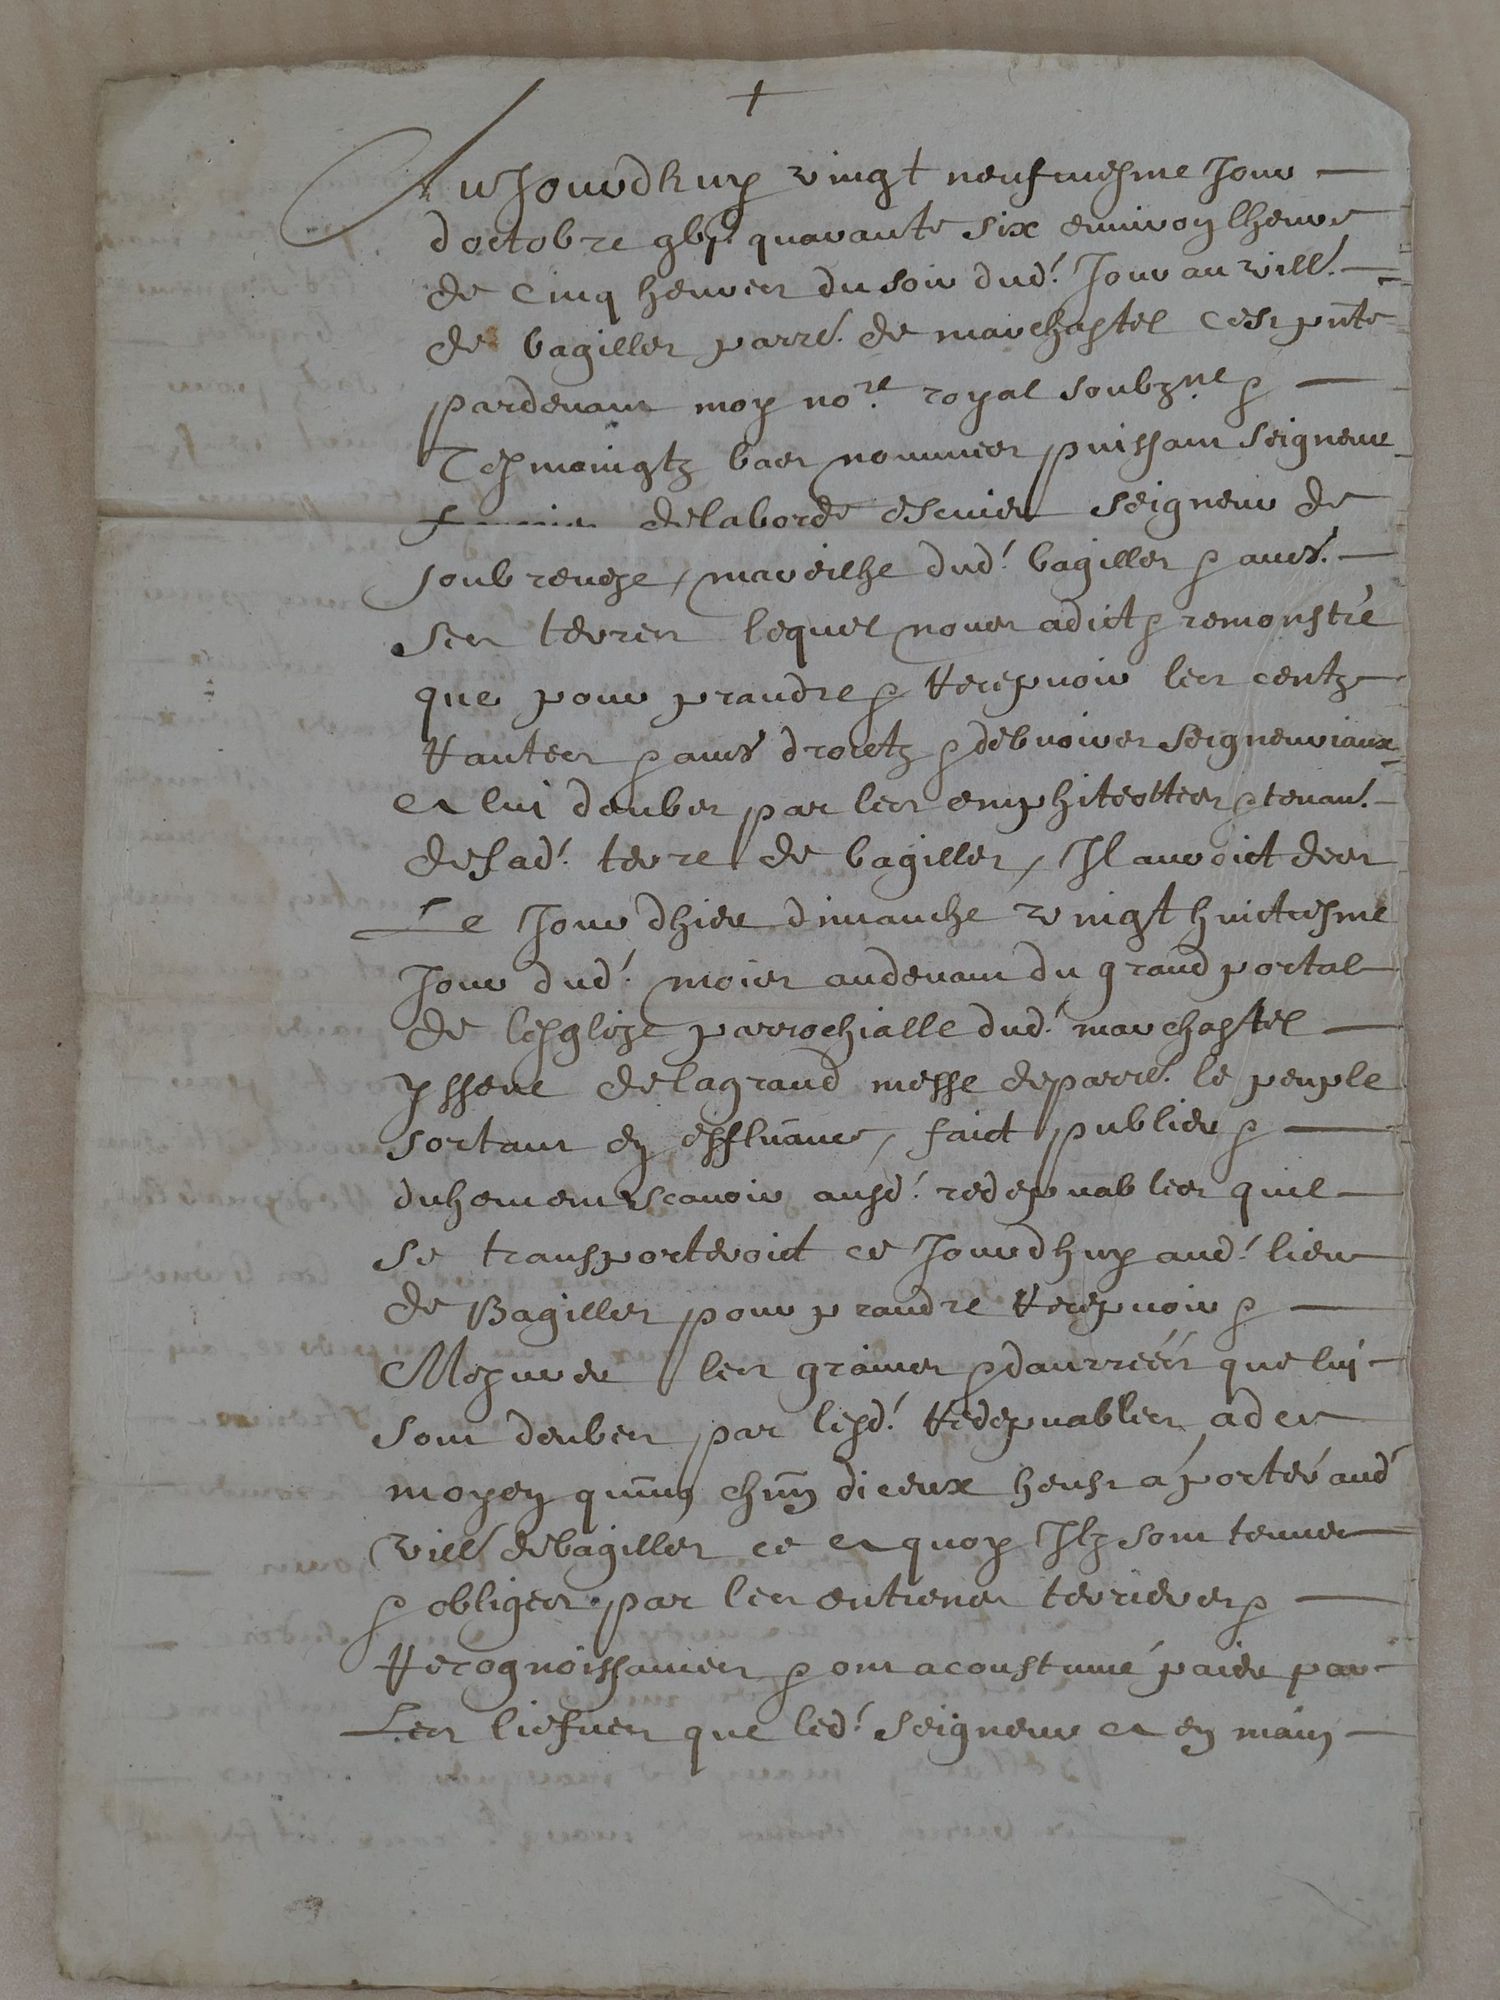 +
Aujourdhuy vingt neufviesme jour
doctobre gbjc quarante six environ lheure
de cinq heures du soir dud. jour au vill.
de bagilles parre. de marchastel cest pnte
pardevant moy nore. royal soubzne. &
tesmoingtz bas nommes puissant seigneur
delaborde escuier seigneur de
soubreveze, mareilhe dud. bagilles & autr.
ses terres lequel nous a dict & remonstré
que pour prandre & recepvoir les centz
rantes & autr droictz & debvoires seigneuriaux
a lui deubes par les emphiteottes & tenan.
de sad. terre de bagilles, il auroict des
le jour dhier dimanche vingt huictiesme
jour dud. mois audevant du grand portal
de lesglize parrochialle dud. marchastel
yssene de la grand messe de parre. le peuple
sortant en affluance, faict publier &
duhement scavoir ausd. redepvables quil
se transporteroict ce jourdhuy aud. lieu
de Bagilles pour prandre recepvoir &
mesurer les graines & danrréés que lui
sont deubes par lesd. redepvables a des
moyen quun chun diceux heust a porter aud
vill de bagilles ce a quoy ilz sont tenues
& obliges par les entienes terrieres &
recognoissances & ont acoustumé paier par
les liefves que led. seigneur a en main